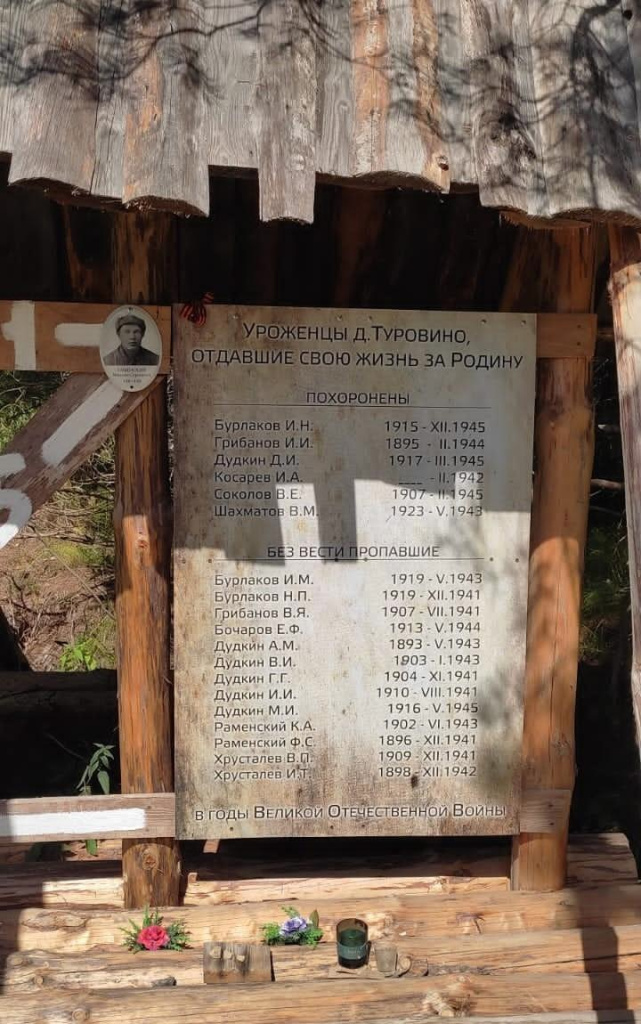 Уроженцы д.Туровино,
отдавшие свою жизнь за Родину
похоронены
Бурлаков И.Н. 1915 - XII.1945
Грибанов И.И. 1895 - II.1944
Дудкин Д.И. 1917 - III.1945
Косарев И.А. ____ - II.1942
Соколов В.Е. 1907 - II.1945
Шахматов В.М. 1923 - V.1943
без вести пропавшие
Бурлаков И.М. 1919 - V.1943
Бурлаков Н.П. 1919 - XII.1941
Грибанов В.Я. 1907 - VII.1941
Бочаров Е.Ф. 1913 - V.1944
Дудкин А.М. 1893 - V.1943
Дудкин В.И. 1903 - I.1943
Дудкин Г.Г. 1904 - XI.1941
Дудкин И.И. 1910 - VIII.1941
Дудкин М.И. 1916 - V.1945
Раменский К.А. 1902 - VI.1943
Раменский Ф.С. 1896 - XII.1941
Хрусталев В.П. 1909 - XII.1941
Хрусталев И.Т. 1898 - XII.1942
в годы Великой Отечественной Войны